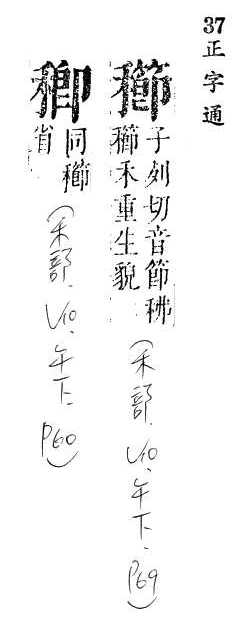 37 正字通
子列切音節
禾重生貌
(禾部、V10、午下、P69)
同
省
(禾部、V10、午下、P60)